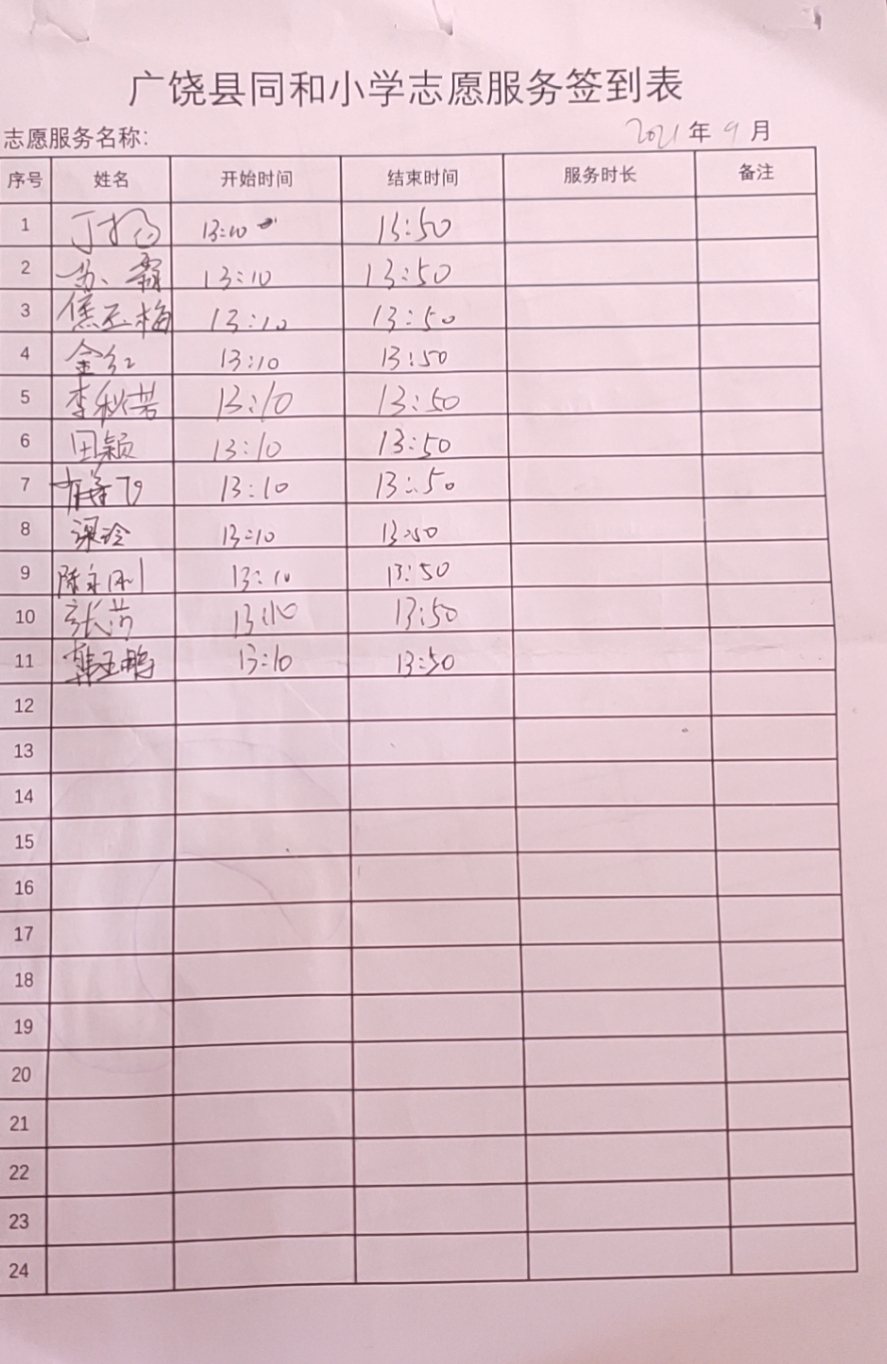 广饶县同和小学志愿服务签到表
志愿服务名称: 2021年9月
序号 姓名 开始时间 结束时间 服务时长 备注
1 丁扬 13:10 13:50
2 苏霖 13:10 13:50
3 焦玉梅 13:10 13:50
4 金红 13:10 13:50
5 李秋芳 13:10 13:50
6 田颖 13:10 13:50
7 13:10 13:50
8 梁玲 13:10 13:50
9 陈永刚 13:10 13:50
10 张芳 13:10 13:50
11 13:10 13:50
12
13
14
15
16
17
18
19
20
21
22
23
24